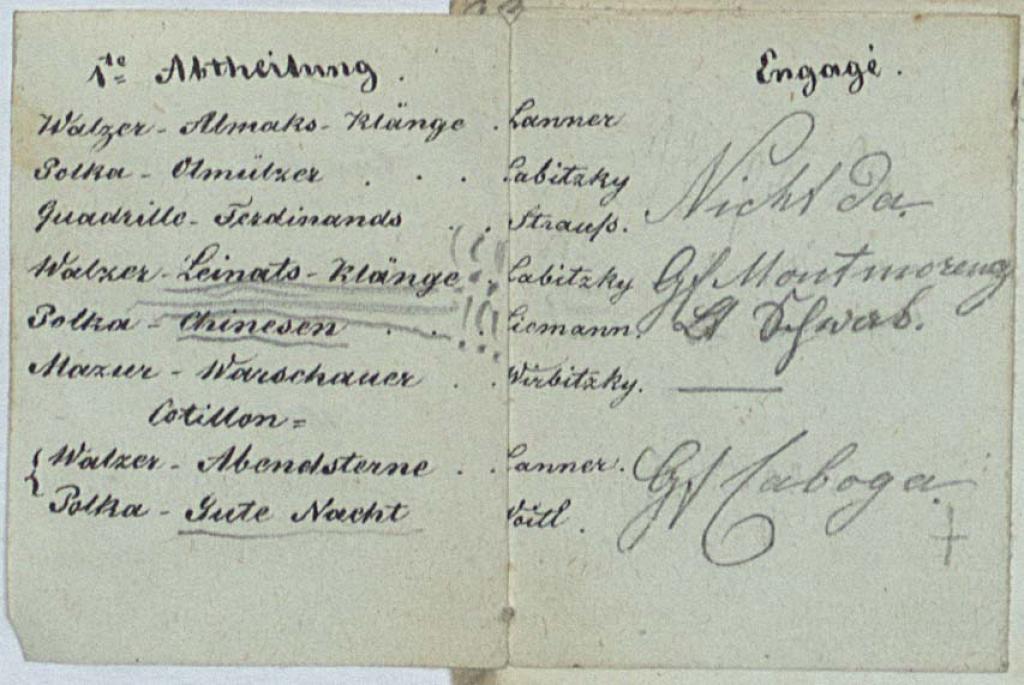 1te Abtheilung. Engagé.
Walzer - Almaks - Klänge . Lanner
Polka - Olmützer . . . Labitzky
Nicht da
Quadrille - Ferdinands . . Strauß.
Walzer - Leinats - Klänge . Labitzky Gf Montmoreng
Polka - Chinesen . . . Liemann. Lt Schwab.
Mazur - Warschauer . . Wirbitzky. —
Cotillon =
{ Walzer - Abendsterne . . Lanner. Gf Caboga
Polka - Gute Nacht Voitl.